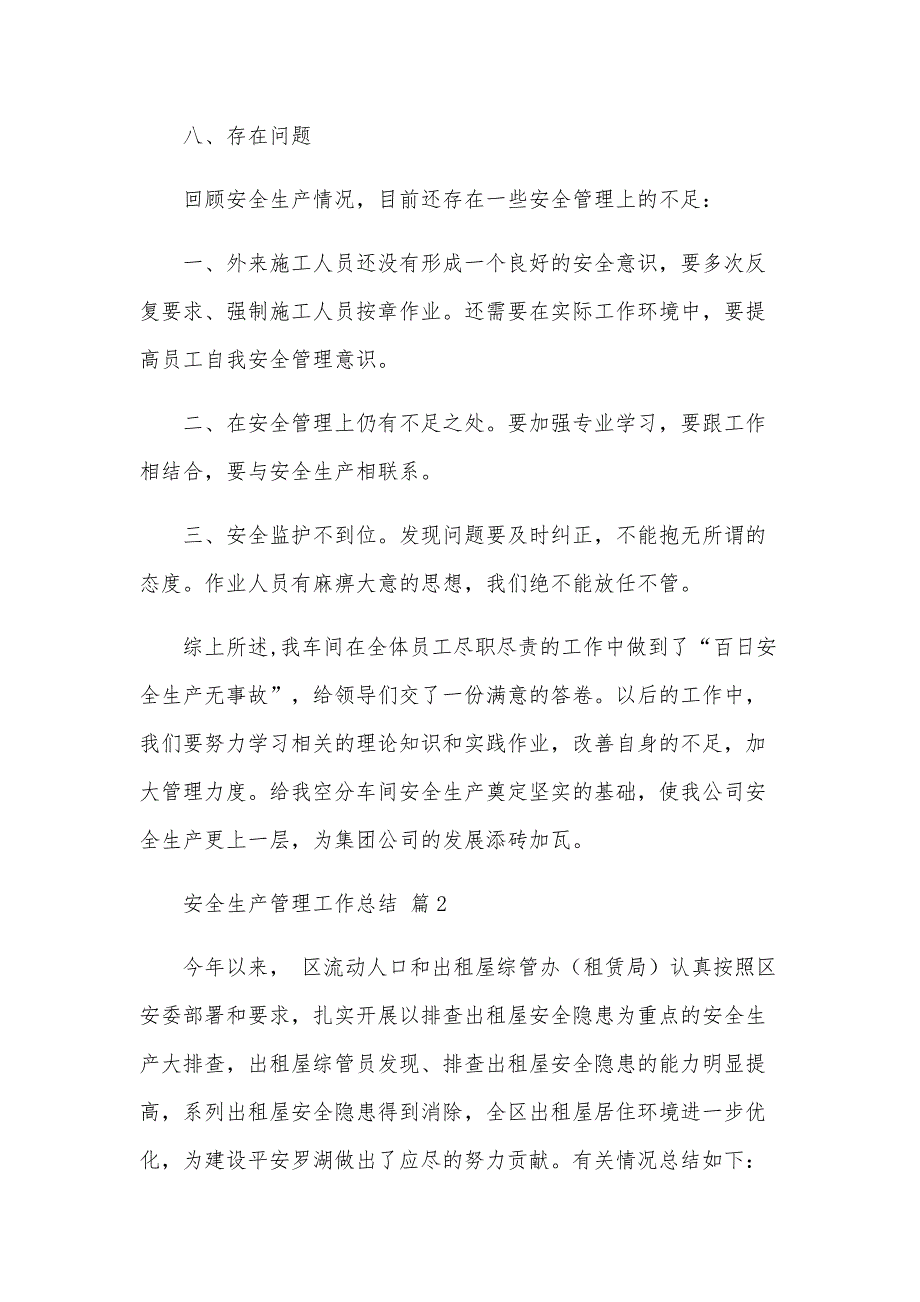 八、存在问题
回顾安全生产情况，目前还存在一些安全管理上的不足：
一、外来施工人员还没有形成一个良好的安全意识，要多次反
复要求、强制施工人员按章作业。还需要在实际工作环境中，要提
高员工自我安全管理意识。
二、在安全管理上仍有不足之处。要加强专业学习，要跟工作
相结合，要与安全生产相联系。
三、安全监护不到位。发现问题要及时纠正，不能抱无所谓的
态度。作业人员有麻痹大意的思想，我们绝不能放任不管。
综上所述,我车间在全体员工尽职尽责的工作中做到了“百日安
全生产无事故”，给领导们交了一份满意的答卷。以后的工作中，
我们要努力学习相关的理论知识和实践作业，改善自身的不足，加
大管理力度。给我空分车间安全生产奠定坚实的基础，使我公司安
全生产更上一层，为集团公司的发展添砖加瓦。
安全生产管理工作总结 篇2
今年以来， 区流动人口和出租屋综管办（租赁局）认真按照区
安委部署和要求，扎实开展以排查出租屋安全隐患为重点的安全生
产大排查，出租屋综管员发现、排查出租屋安全隐患的能力明显提
高，系列出租屋安全隐患得到消除，全区出租屋居住环境进一步优
化，为建设平安罗湖做出了应尽的努力贡献。有关情况总结如下：